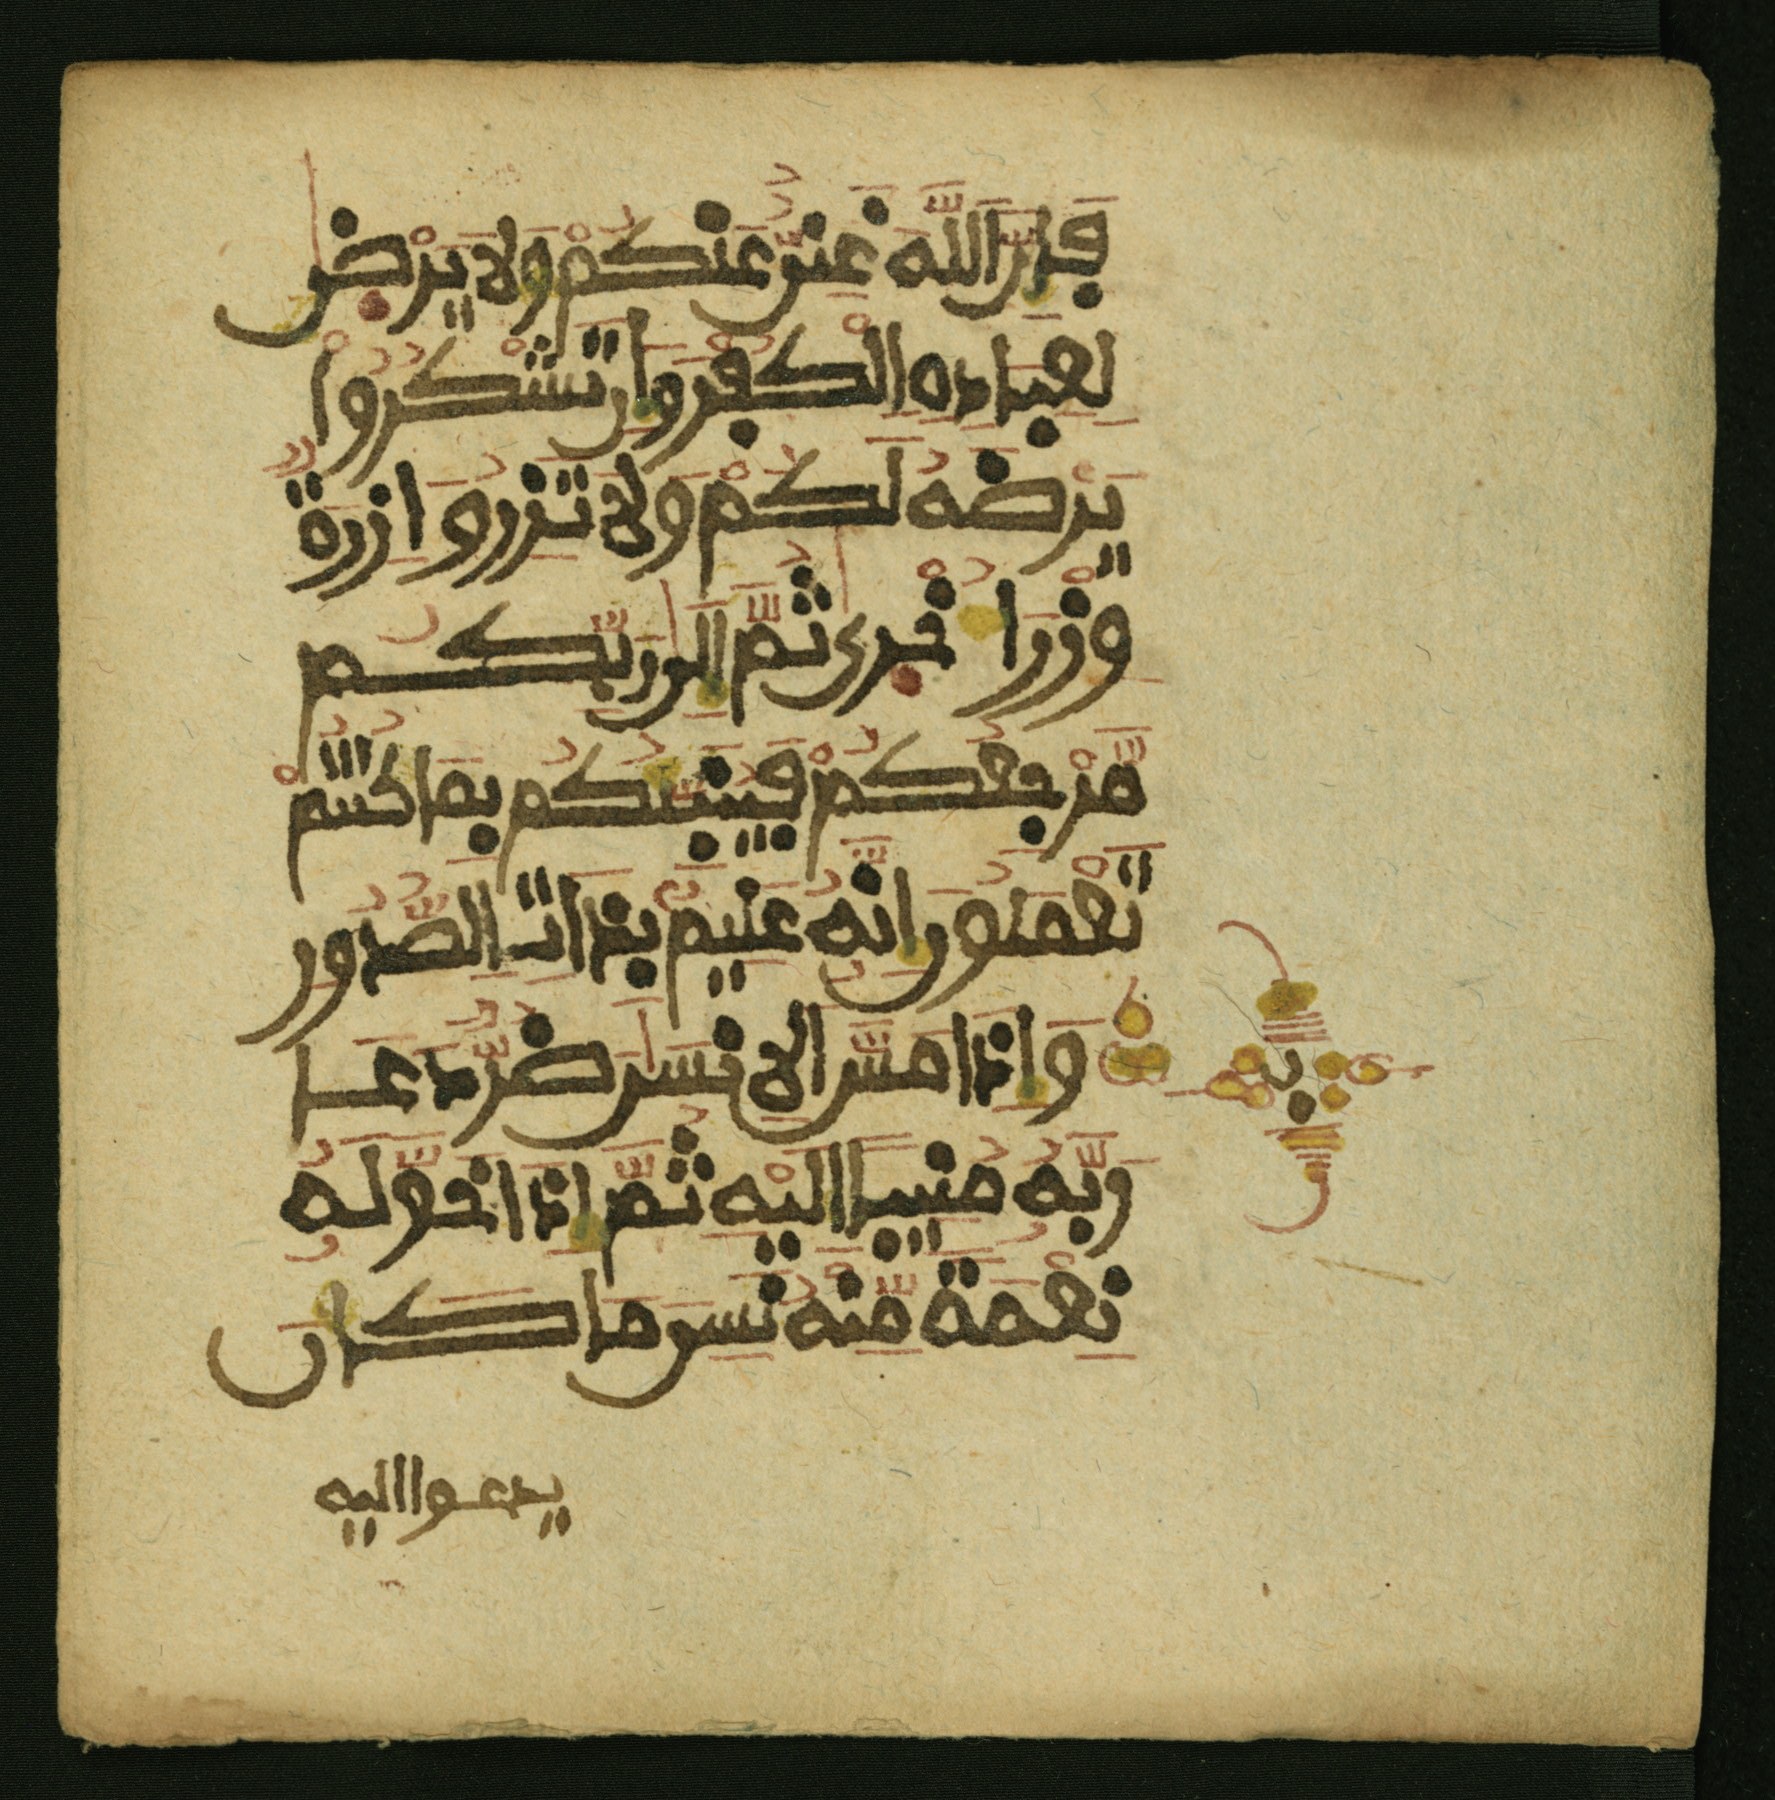 فَإِنَّ اَللَّهَ غَنِيٌّ عَنكُمْ وَلَا يَرْضىٰ
لِعِبَادِهِ اِلْكُفْرَ وَإِن تَشْكُرُواْ
يَرْضَهُ لَكُمْ وَلَا تَزِرُ وَازِرَةٌ
وِزْرَ أُخْرىٰ ثُمَّ إِلىٰ رَبِّكُم
مَّرْجِعُكُمْ فَيُنَبِّئُكُم بِمَا كُنتُمْ
تَعْمَلُونَ إِنَّهُ عَلِيمٌ بِذَاتِ اِلصُّدُورِ
وَإِذَا مَسَّ اَلِانسَٰنَ ضُرٌّ دَعَا
رَبَّهُ مُنِيباً إِلَيْهِ ثُمَّ إِذَا خَوَّلَهُ
نِعْمَةً مِّنْهُ نَسِيَ مَا كَانَ
يدعوا اليه